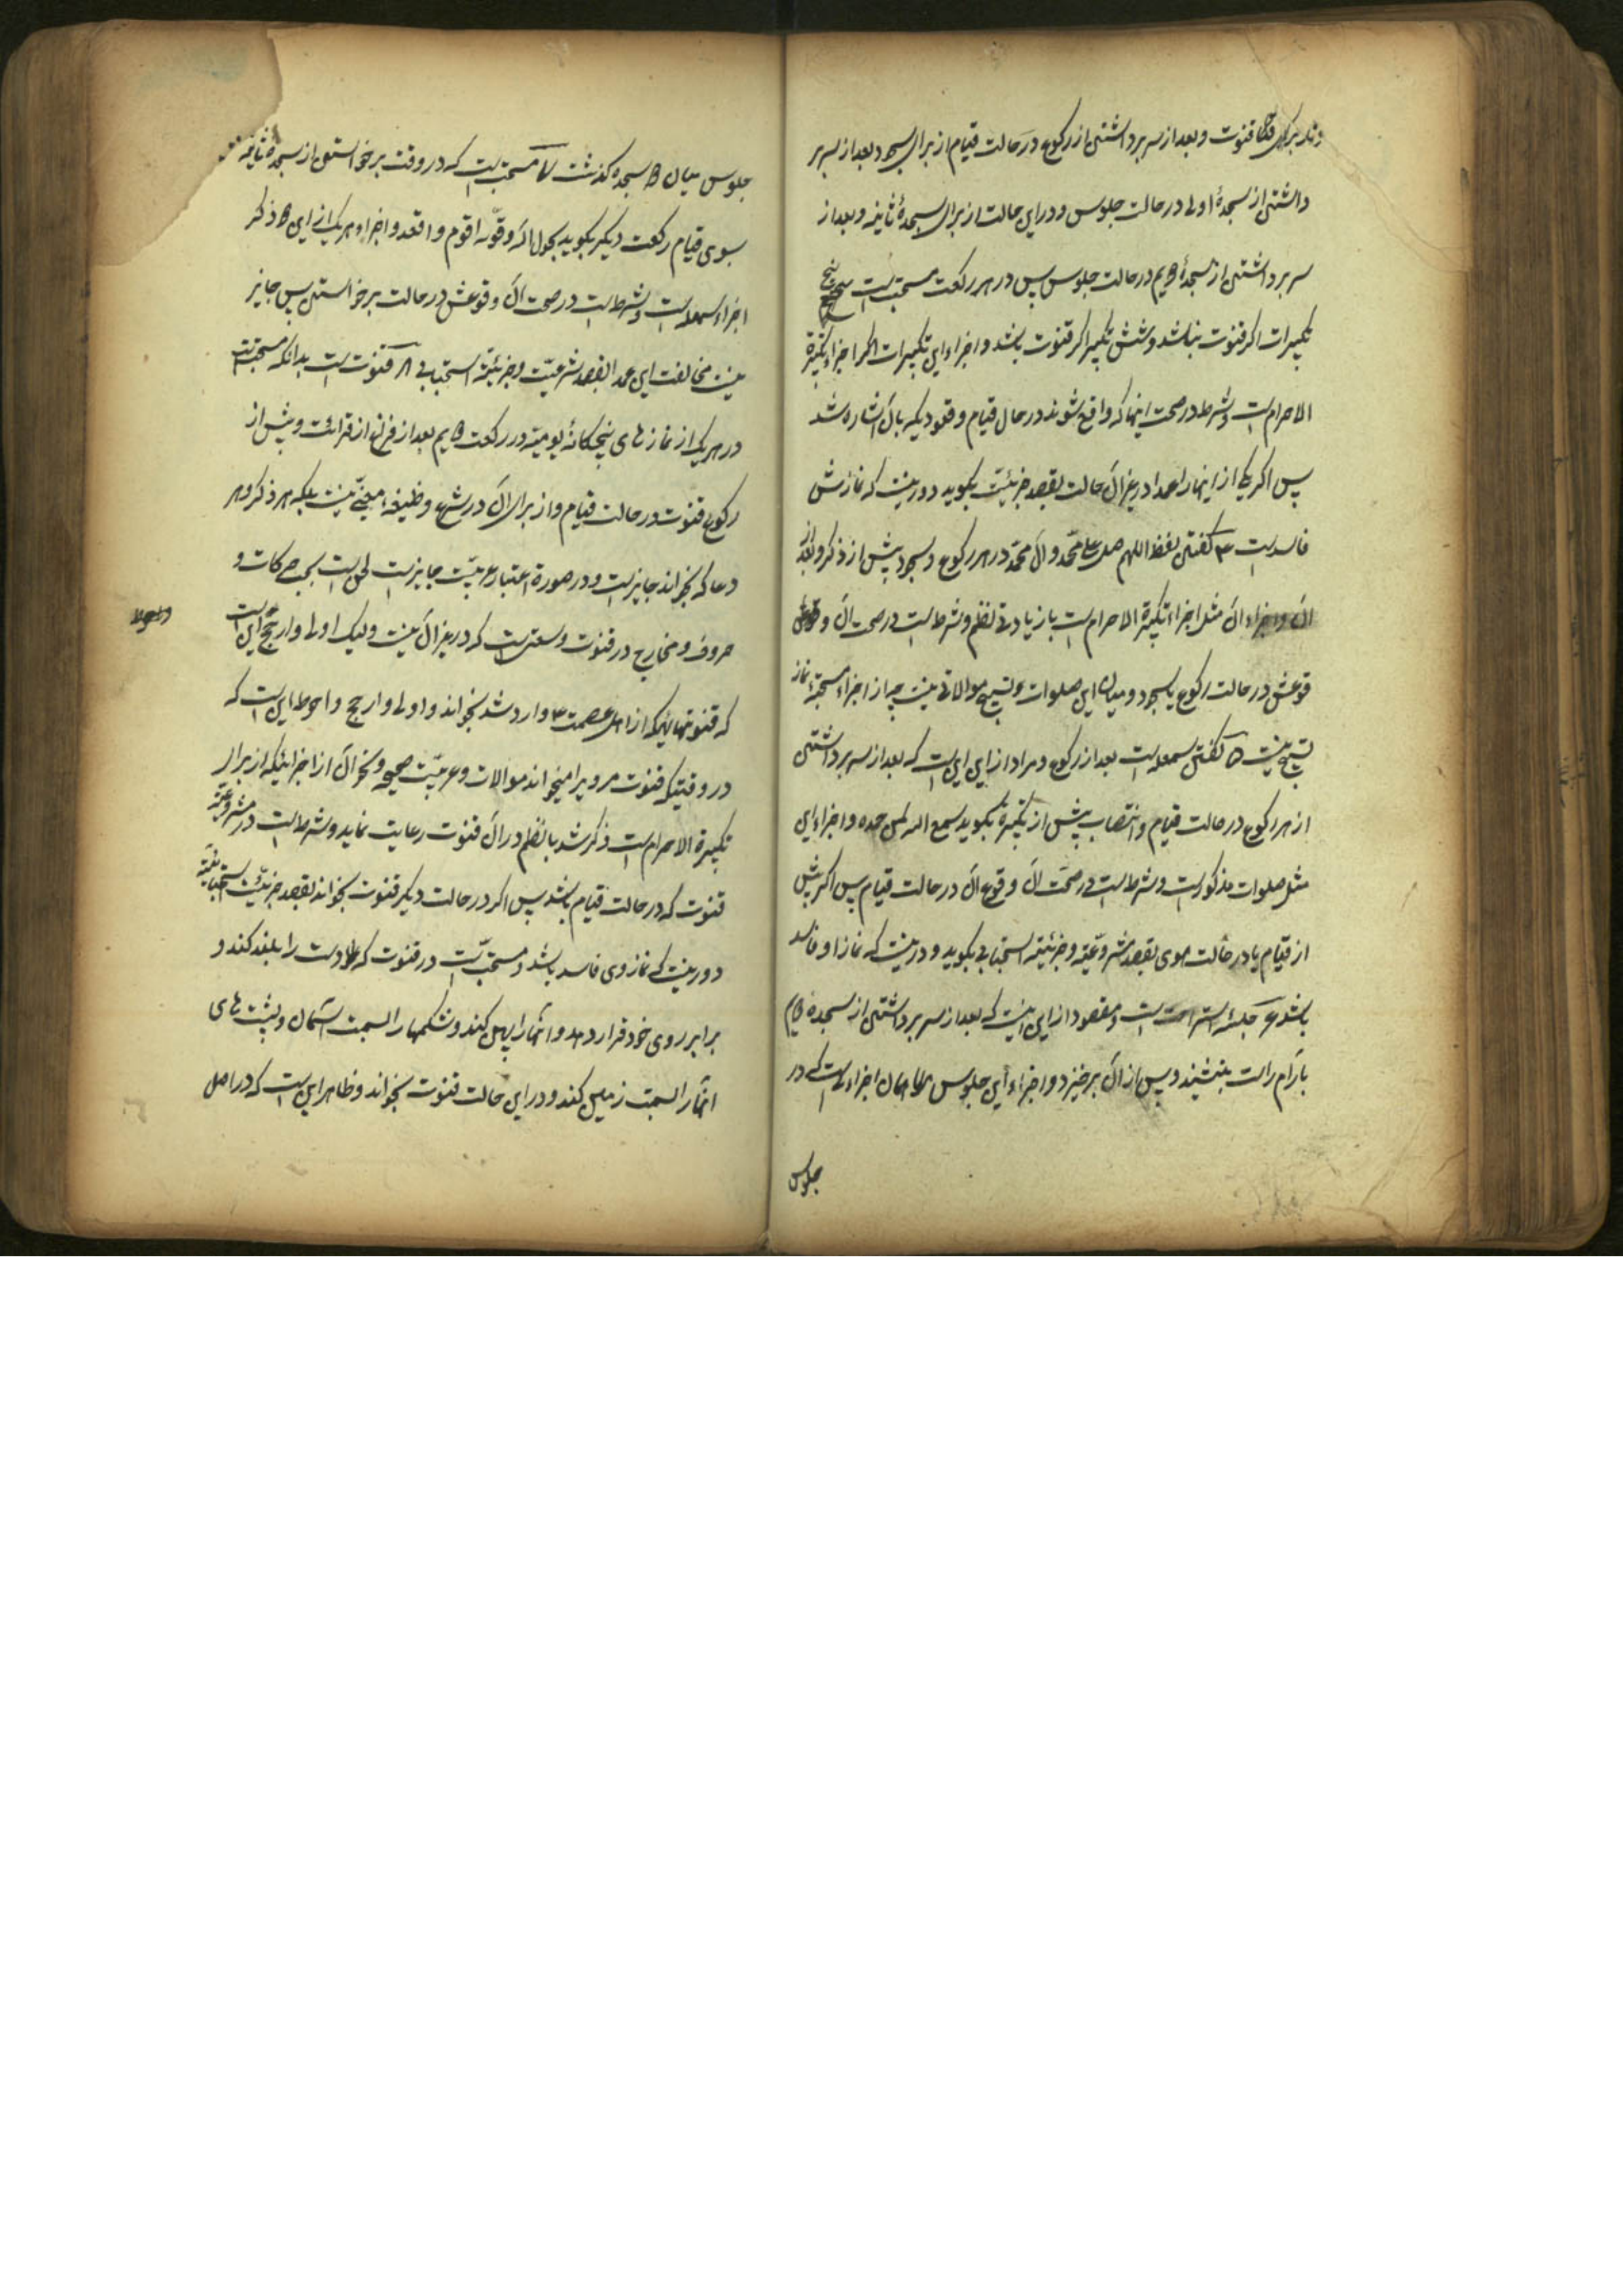 قنوت و بعد از سر برداشتن از رکوع در حالت قیام از برای سجود و بعد از سر بر
داشتن از سجدهٔ اولی در حالت جلوس و در این حالت از برای سجدهٔ ثانیه و بعد از
سر برداشتن از سجدهٔ دویم در حالت جلوس پس در هر رکعت مستحب است پنج
تکبیرات اگر قنوت نباشد و شش تکبیر اگر قنوت باشد و اجزاء این تکبیرات اجزاء تکبیرة
الاحرام است و شرط در صحت اینها که واقع شوند در حال قیام و قعودیکه بآن اشاره شد
پس اگر یکی از اینها را عمدا در غیر آن حالت بقصد جزئیّت بگوید دور نیست که نمازش
فاسد است ۴ گفتن لفظ اللهم صل علی محمّد و آل محمّد در هر رکوع و سجود پیش از ذکر و بعد از
آن و اجزاء آن مثل اجزاء تکبیرة الاحرام است با زیادتی نظم و شرط است در صحت آن
وقوعش در حالت رکوع یا سجود و میان این صلوات و تسبیح موالاتی نیست چه از اجزاء مستحبهٔ نماز
تسبیح نیست ۵ گفتن سمعله است بعد از رکوع و مراد از این این است که بعد از سر برداشتن
از هر رکوع در حالت قیام و انتصاب پیش از تکبیرة بگوید سمع الله لمن حمده و اجزاء این
مثل صلوات مذکور است و شرط است در صحّت آن وقوع آن در حالت قیام پس اگر پیش
از قیام یا در حالت هوی بقصد مشروعیّة و جزئیّة استحبابی بگوید دور نیست که نماز او فاسد
باشد ۶ جلسهٔ استراحت است و مقصود از این اینست که بعد از سر برداشتن از سجده دویم
بآرام راست بنشیند و پس از آن برخیزد و اجزاء این جلوس همان اجزاء است که در
جلوس
جلوس میان دو سجده گذشت ۷ مستحب است که در وقت برخواستن از سجده ثانیه
بسوی قیام رکعت دیگر بگوید بحول الله و قوّته اقوم و اقعد و اجزاء هر یک از این دو ذکر
اجزاء سمعله است و شرط است در صحت آن وقوعش در حالت برخواستن پس جایز
نیست مخالفت این عمدا بقصد شرعیّت و جزئیّة استحبابی ۸ قنوت است بدانکه مستحب است
در هر یک از نمازهای پنجگانهٔ یومیّه در رکعت دویم بعد از فراغ از قرائت و پیش از
رکوع قنوت در حالت قیام و از برای آن در شرع وظیفهٔ معیّنی نیست بلکه هر ذکر و هر
دعا که بخواند جایز است و در صورة اعتبار عربیّت جایز است لحن است بحسب حرکات و
حروف و مخارج در قنوت وسعتی است که در غیر آن نیست ولیک اولی و ارجح این است
که قنوتهائیکه از اهل عصمت ع وارد شد بخواند و اولی و ارجح و احوط این است که
در وقتیکه قنوت مرویرا میخواند موالات و عربیّت صحیحه و نحو آن از اجزائیکه از برای
تکبیرة الاحرام است ذکر شد با نظم در آن قنوت رعایت نماید و شرط است در مشروعیّة
قنوت که در حالت قیام باشد پس اگر در حالت دیگر قنوت بخواند بقصد جزئیّت استحبابیّة
دور نیست که نماز وی فاسد باشد و مستحبّ است در قنوت که دو دست را بلند کند و
برابر روی خود قرار دهد و آنها را پهن کند و شکمها را بسمت آسمان و پشت های
آنها را بسمت زمین کند و در این حالت قنوت بخواند و ظاهر این است که در اصل